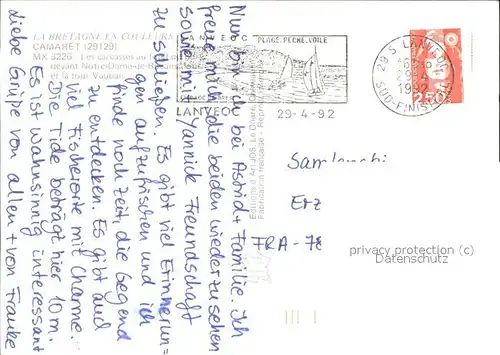 LA BRETAGNE EN COULEURS
CAMARET (29129)
MX 6226 - Les langoustiers au
devant Notre-Dame-de-
et la tour Vauban
Nun bin ich bei Astrid + Familie. Ich
freue mich die beiden wiederzusehen
sowie mit Yannick Freundschaft
zu schließen. Es gibt viel Erinnerun=
gen aufzufrischen und ich
finde noch Zeit, die Gegend
zu entdecken. Es gibt auch
viel Fischerorte mit Charme.
Die Tide beträgt hier 10 m.
Es ist wahnsinnig interessant
Liebe Grüße von allen + von Frauke
Editions d'Art JOS
Fabrication française - Repro
LANVEOC
PLAGE. PECHE. VOILE
LANVEOC 29-4-92
29 S LANVEOC
29-4
1992
SUD-FINISTERE
2,50
Erz
FRA - 78
privacy protection (c)
Datenschutz